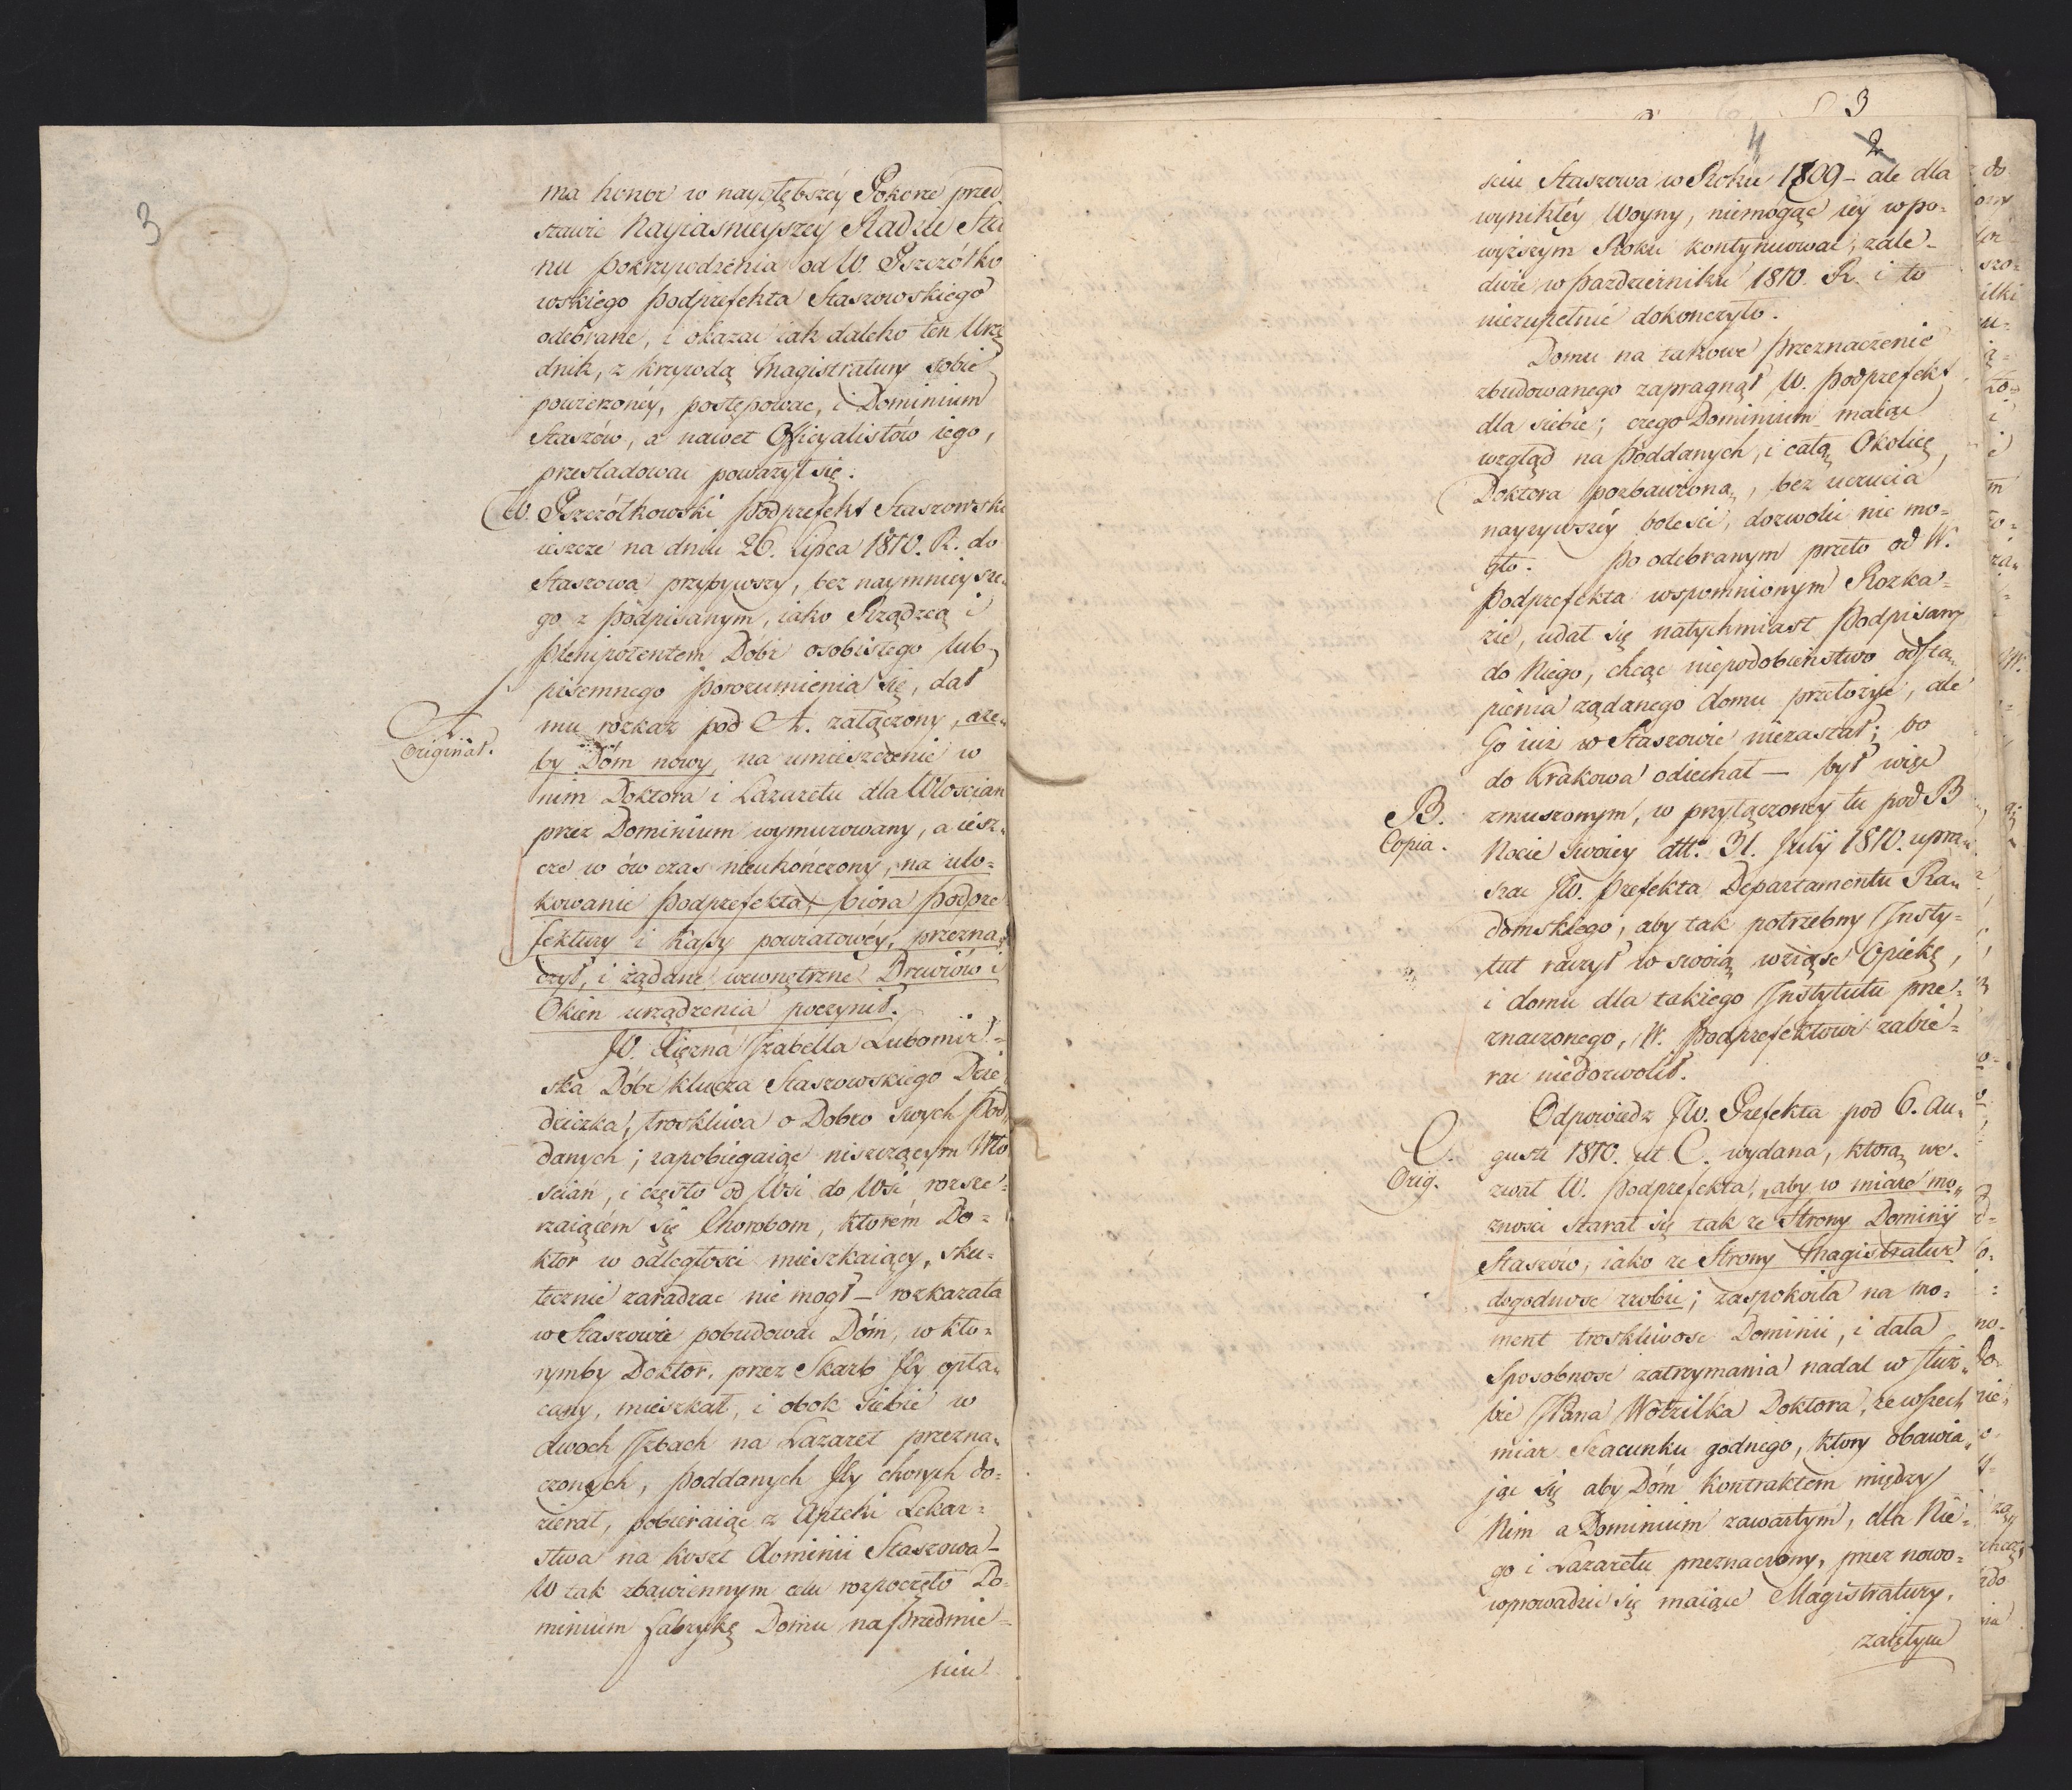 3
ma honor w naygłębszéy Pokorze przed
stawić Nayiasnieyszey Radzie Sta
nu pokrzywdzenia od W. Pszczółko
wskiego Podprefekta Staszowskiego
odebrane, i okazać iak daleko ten Urzę
dnik, z krzywdą Magistratury sobie
powierzonéy, postępować, i Dominium
Staszów, a nawet Officyalistów iego,
prześladować poważył się.
W. Pszczółkowski Podprefekt Staszowski
ieszcze na dniu 26. Lipca 1810. R. do
Staszowa przybywszy, bez naymnieysze„
go z Podpisanym, iako Rządzcą i
Plenipotentem Dóbr osobistego lub
pisemnego porozumienia się, dał
A.
Originał.
mu rozkaz pod A. załączony, „aże„
by Dóm nowy, na umieszczenie w
nim Doktora i Lazaretu dla Włościan
przez Dominium wymurowany, a iesz„
cze w ów czas nieukończony, na ulo=
kowanie Podprefekta, bióra Podpre
fektury i Kassy powiatowéy, przezna„
czył, i żądane wewnętrzne Drzwiów i
Okien urządzenia poczynił.
JO. Xiężna Izabella Lubomir=
ska Dóbr klucza Staszowskiego Dzie
dziczka, troskliwa o Dobro swych Pod„
danych; zapobiegaiąc niszczącym Wło
ścian, i często od Wsi do Wsi rozsze=
rzaiącém się Chorobom, którém Do=
ktor w odległości mieszkaiący, sku=
tecznie zaradzać nie mógł — rozkazała
w Staszowie pobudować Dóm, w któ=
rymby Doktor, przez Skarb Jéy opła„
cany, mieszkał, i obok siebie w
dwoch Izbach na Lazaret przezna„
czonych, Poddanych Jéy chorych do=
zierał, pobieraiąc z Apteki Lekar=
stwa na koszt Dominii Staszowa —
W tak zbawiennym celu rozpoczęło Do=
minium fabrykę Domu na Przedmie=
ściu
3
4
2
ściu Staszowa w Roku 1809 — ale dla
wynikłéy Woyny, niemogąc iéy w po=
wyższym Roku kontynuować, zale=
dwie w Październiku 1810. R. i to
niezupełnie dokończyło.
Domu na takowe przeznaczenie
zbudowanego zapragnął W. Podprefekt
dla siebie; czego Dominium maiąc
wzgląd na Poddanych, i całą Okolicę,
Doktora pozbawioną, bez uczucia
nayżywszéy boleści, dozwolić nie mo=
gło. Po odebranym przeto od W.
Podprefekta wspomnionym Rozka=
zie, udał się natychmiast Podpisany
do Niego, chcąc niepodobieństwo odstą„
pienia żądanego domu przełożyć, ale
Go iuż w Staszowie niezastał; bo
do Krakowa odiechał — był więc
B.
Copia.
zmuszonym, w przyłączoney tu pod B
Nocie swoiey dtto 31. Julij 1810. upra„
szać JW. Prefekta Departamentu Ra„
domskiego, aby tak potrzebny Insty=
tut raczył w swoią wziąsć Opiekę,
i domu dla takiego Instytutu prze=
znaczonego, W. Podprefektowi zabie=
rać niedozwolił.
Odpowiedz JW. Prefekta pod 6. Au„
C.
Orig.
gusti 1810. ut C. wydana, którą we=
zwał W. Podprefekta, „aby w miarę mo„
żności starał się tak ze Strony Dominij
Staszów, iako ze Strony Magistratur
dogodność zrobić; zaspokoiła na mo=
ment troskliwość Dominii, i dała
sposobność zatrzymania nadal w służ„
bie JPana Wotzilka Doktora, ze wszech
miar Szacunku godnego, który obawia„
jąc się aby Dóm kontraktem między
Nim a Dominium zawartym, dla Nie=
go i Lazaretu przeznaczony, przez nowo=
wprowadzić się maiące Magistratury,
zaiętym